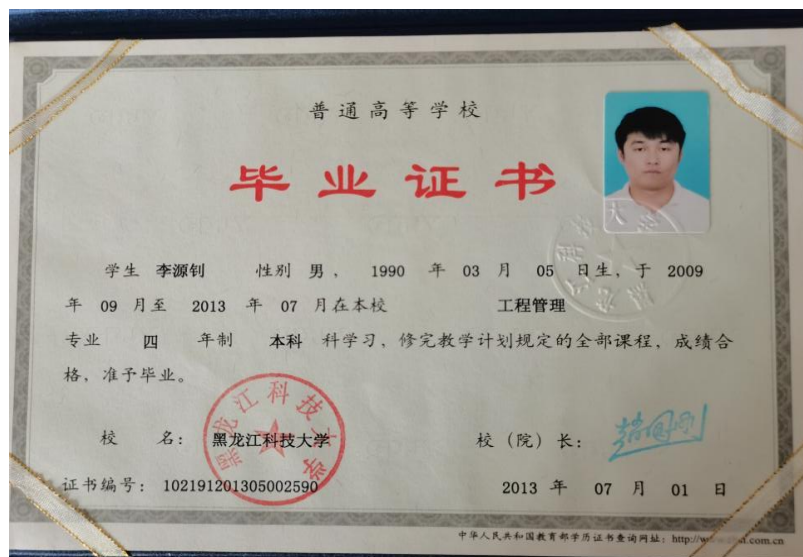 普通高等学校
毕业证书
学生 李源钊 性别 男， 1990 年 03 月 05 日生，于 2009
年 09 月至 2013 年 07 月在本校 工程管理
专业 四 年制 本科 科学习，修完教学计划规定的全部课程，成绩合
格，准予毕业。
校 名： 黑龙江科技大学
校（院）长：
黑龙江科技大学
证书编号： 102191201305002590
2013 年 07 月 01 日
中华人民共和国教育部学历证书查询网址：http://w
.com.cn